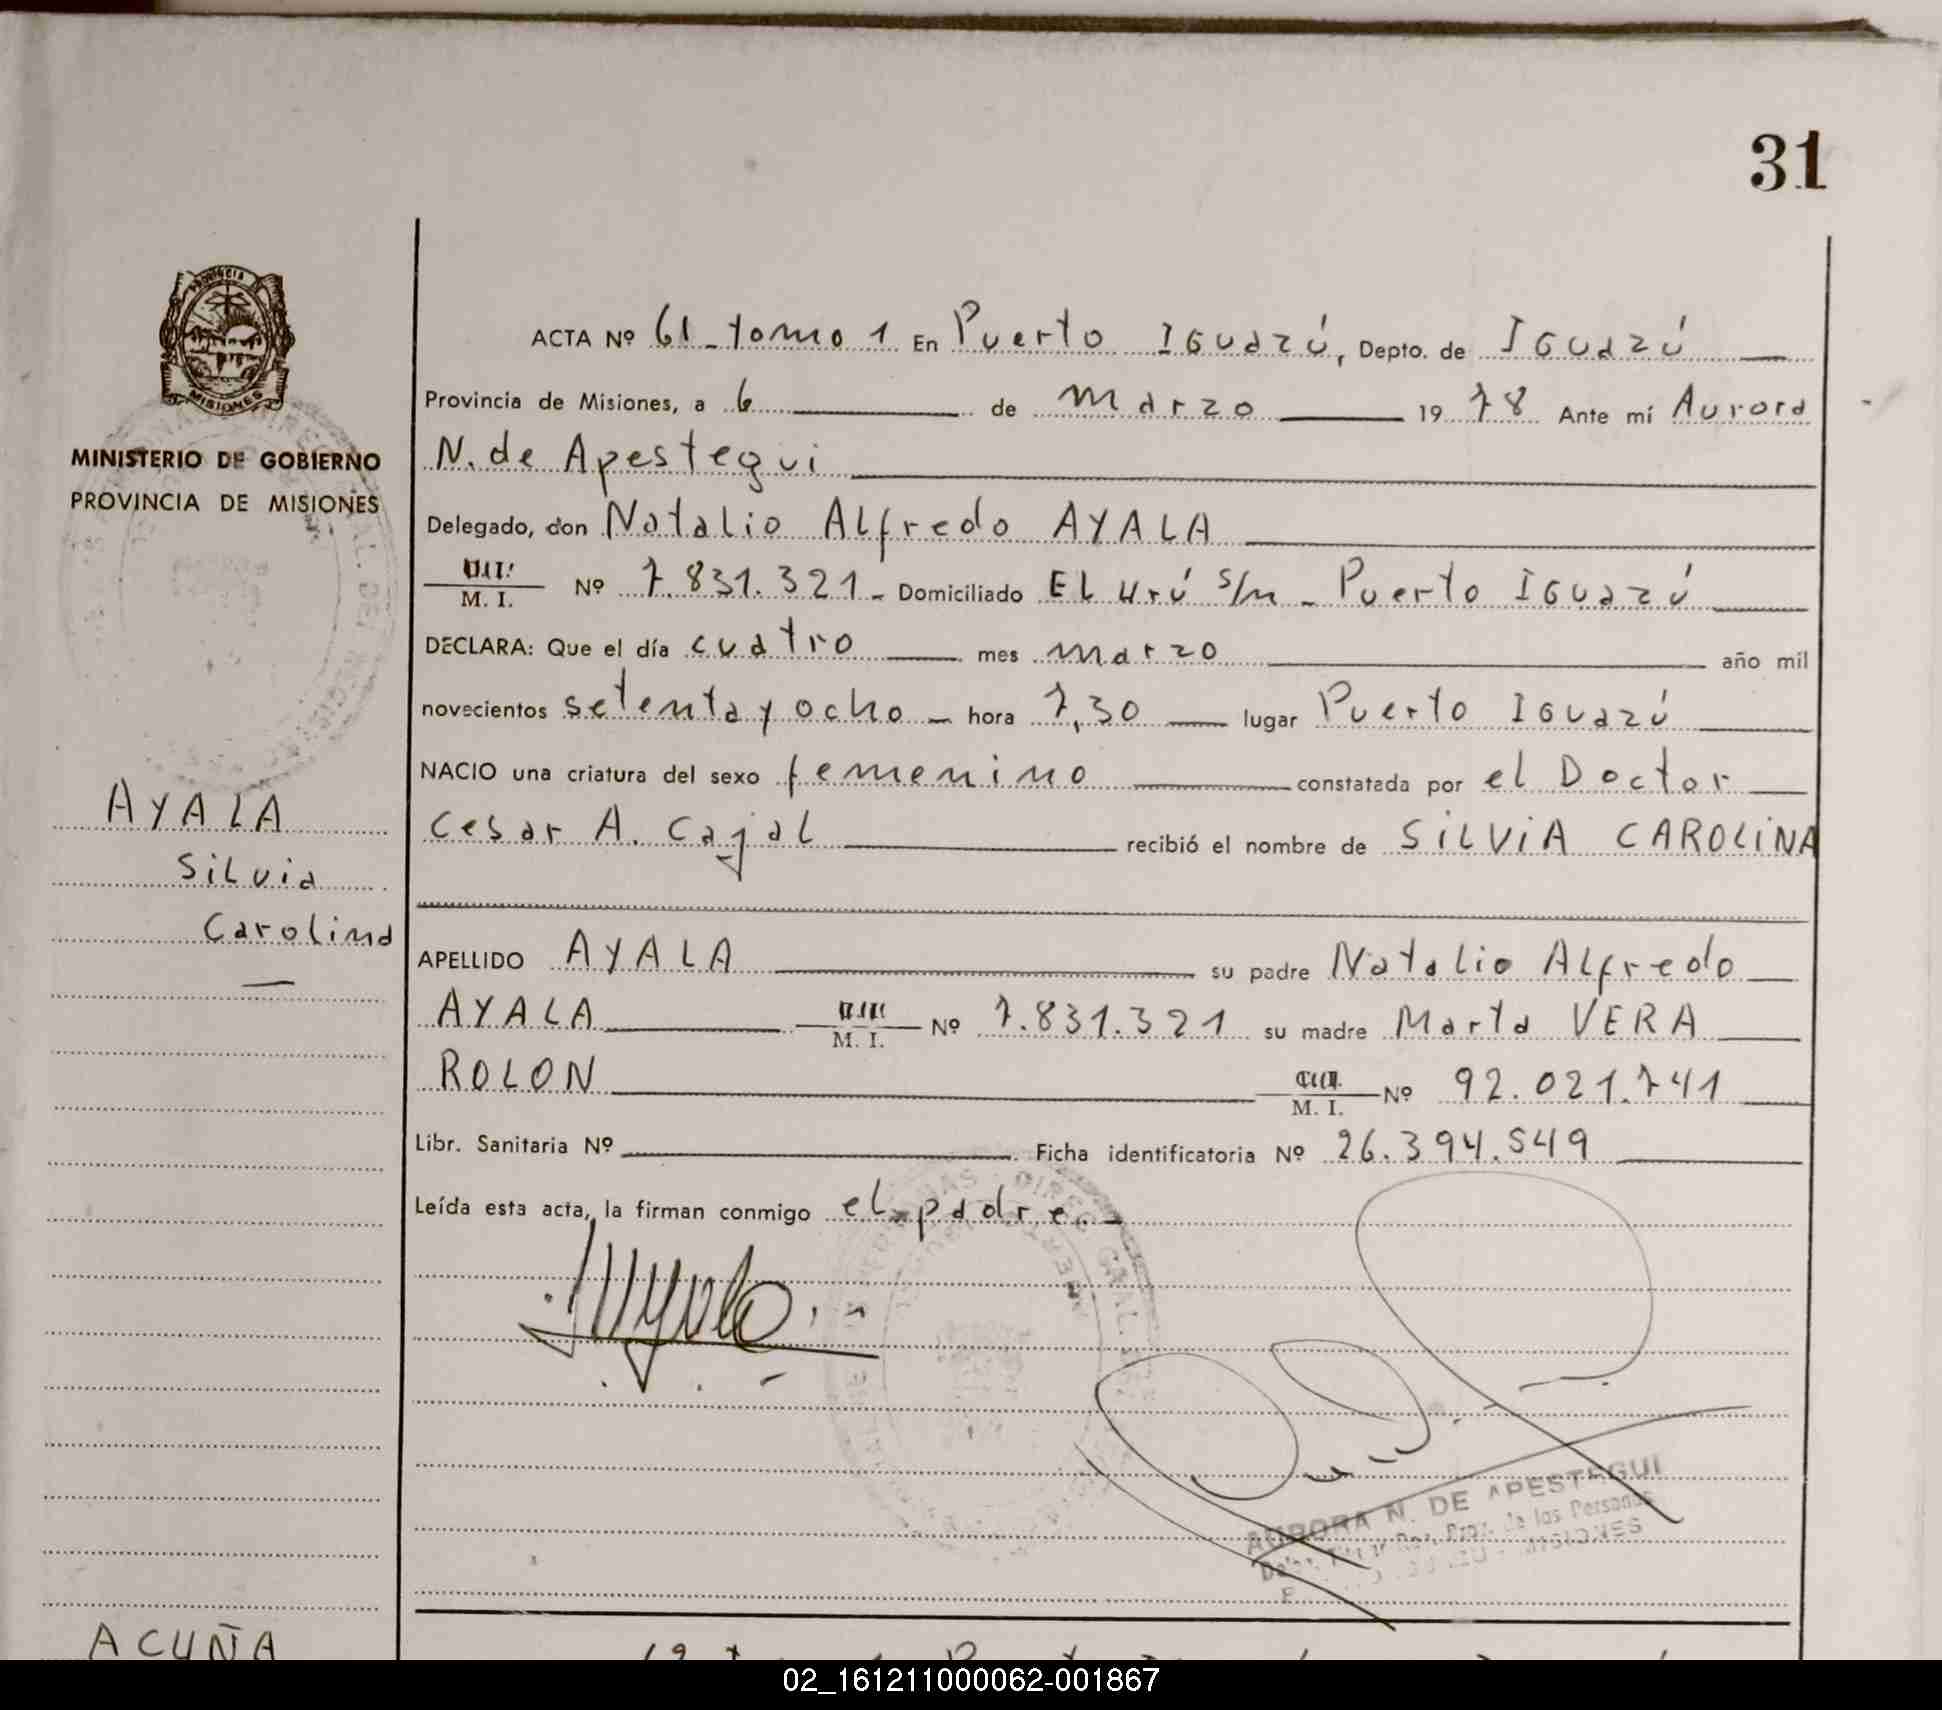 31
PROVINCIA
MISIONES
MINISTERIO DE GOBIERNO
PROVINCIA DE MISIONES
AYALA
Silvia
Carolina
ACTA Nº 61 - tomo 1 En Puerto Iguazú, Depto. de Iguazú
Provincia de Misiones, a 6 de marzo 19 78 Ante mí Aurora
N. de Apestegui
Delegado, don Natalio Alfredo AYALA
M. I. Nº 7.831.321 - Domiciliado El Urú s/n - Puerto Iguazú
DECLARA: Que el día cuatro mes marzo año mil
novecientos setenta y ocho - hora 7,30 lugar Puerto Iguazú
NACIO una criatura del sexo femenino constatada por el Doctor
Cesar A. Cajal recibió el nombre de SILVIA CAROLINA
APELLIDO AYALA su padre Natalio Alfredo
AYALA M. I. Nº 7.831.321 su madre Marta VERA
ROLON M. I. Nº 92.021.741
Libr. Sanitaria Nº Ficha identificatoria Nº 26.394.549
Leída esta acta, la firman conmigo el padre. -
AURORA N. DE APESTEGUI
de las Personas
MISIONES
ACUÑA
02_161211000062-001867